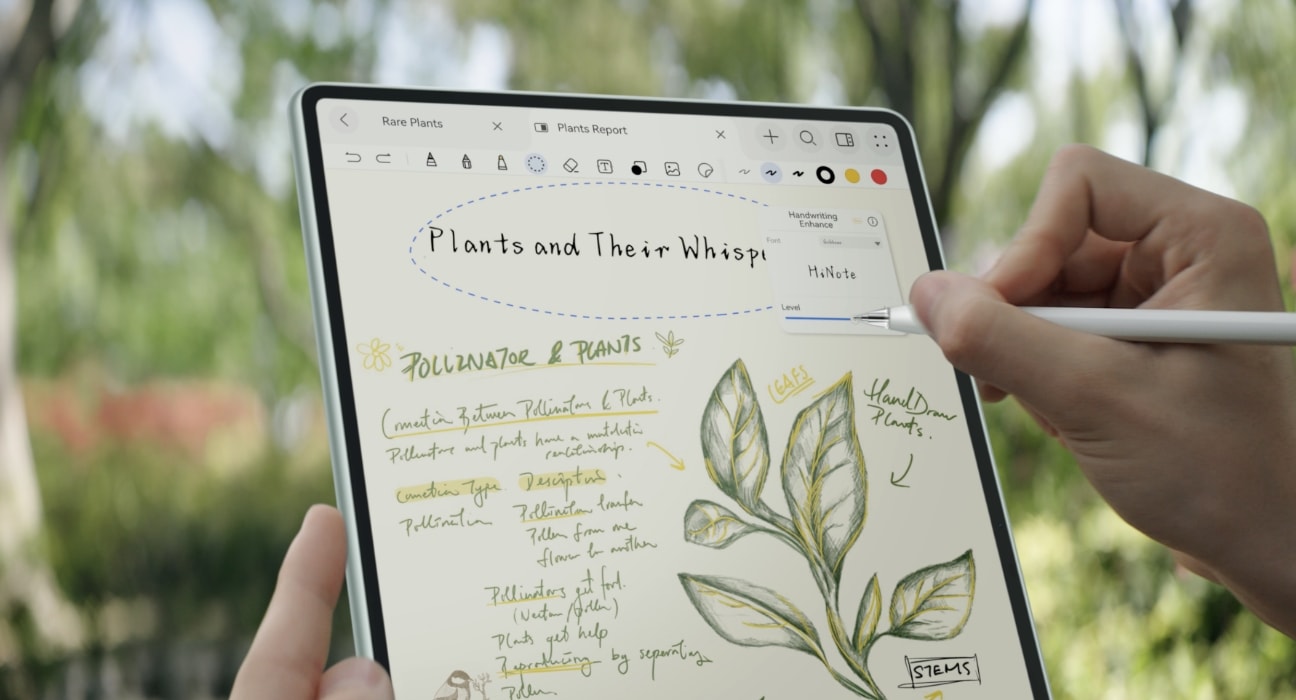 Rare Plants
Plants Report
Handwriting
Enhance
Font
HiNote
Level
Plants and Their Whisp
POLLINATOR & PLANTS
Connection Between Pollinators & Plants.
Pollinators and plants have a
relationship.
Connection Type Description
Pollination
Pollination transfer
Pollen from one
flower to another
Pollinators get food.
(Nectar/pollen)
Plants get help
Reproducing by seperating
Pollen
LEAFS
HandDraw
Plants.
STEMS